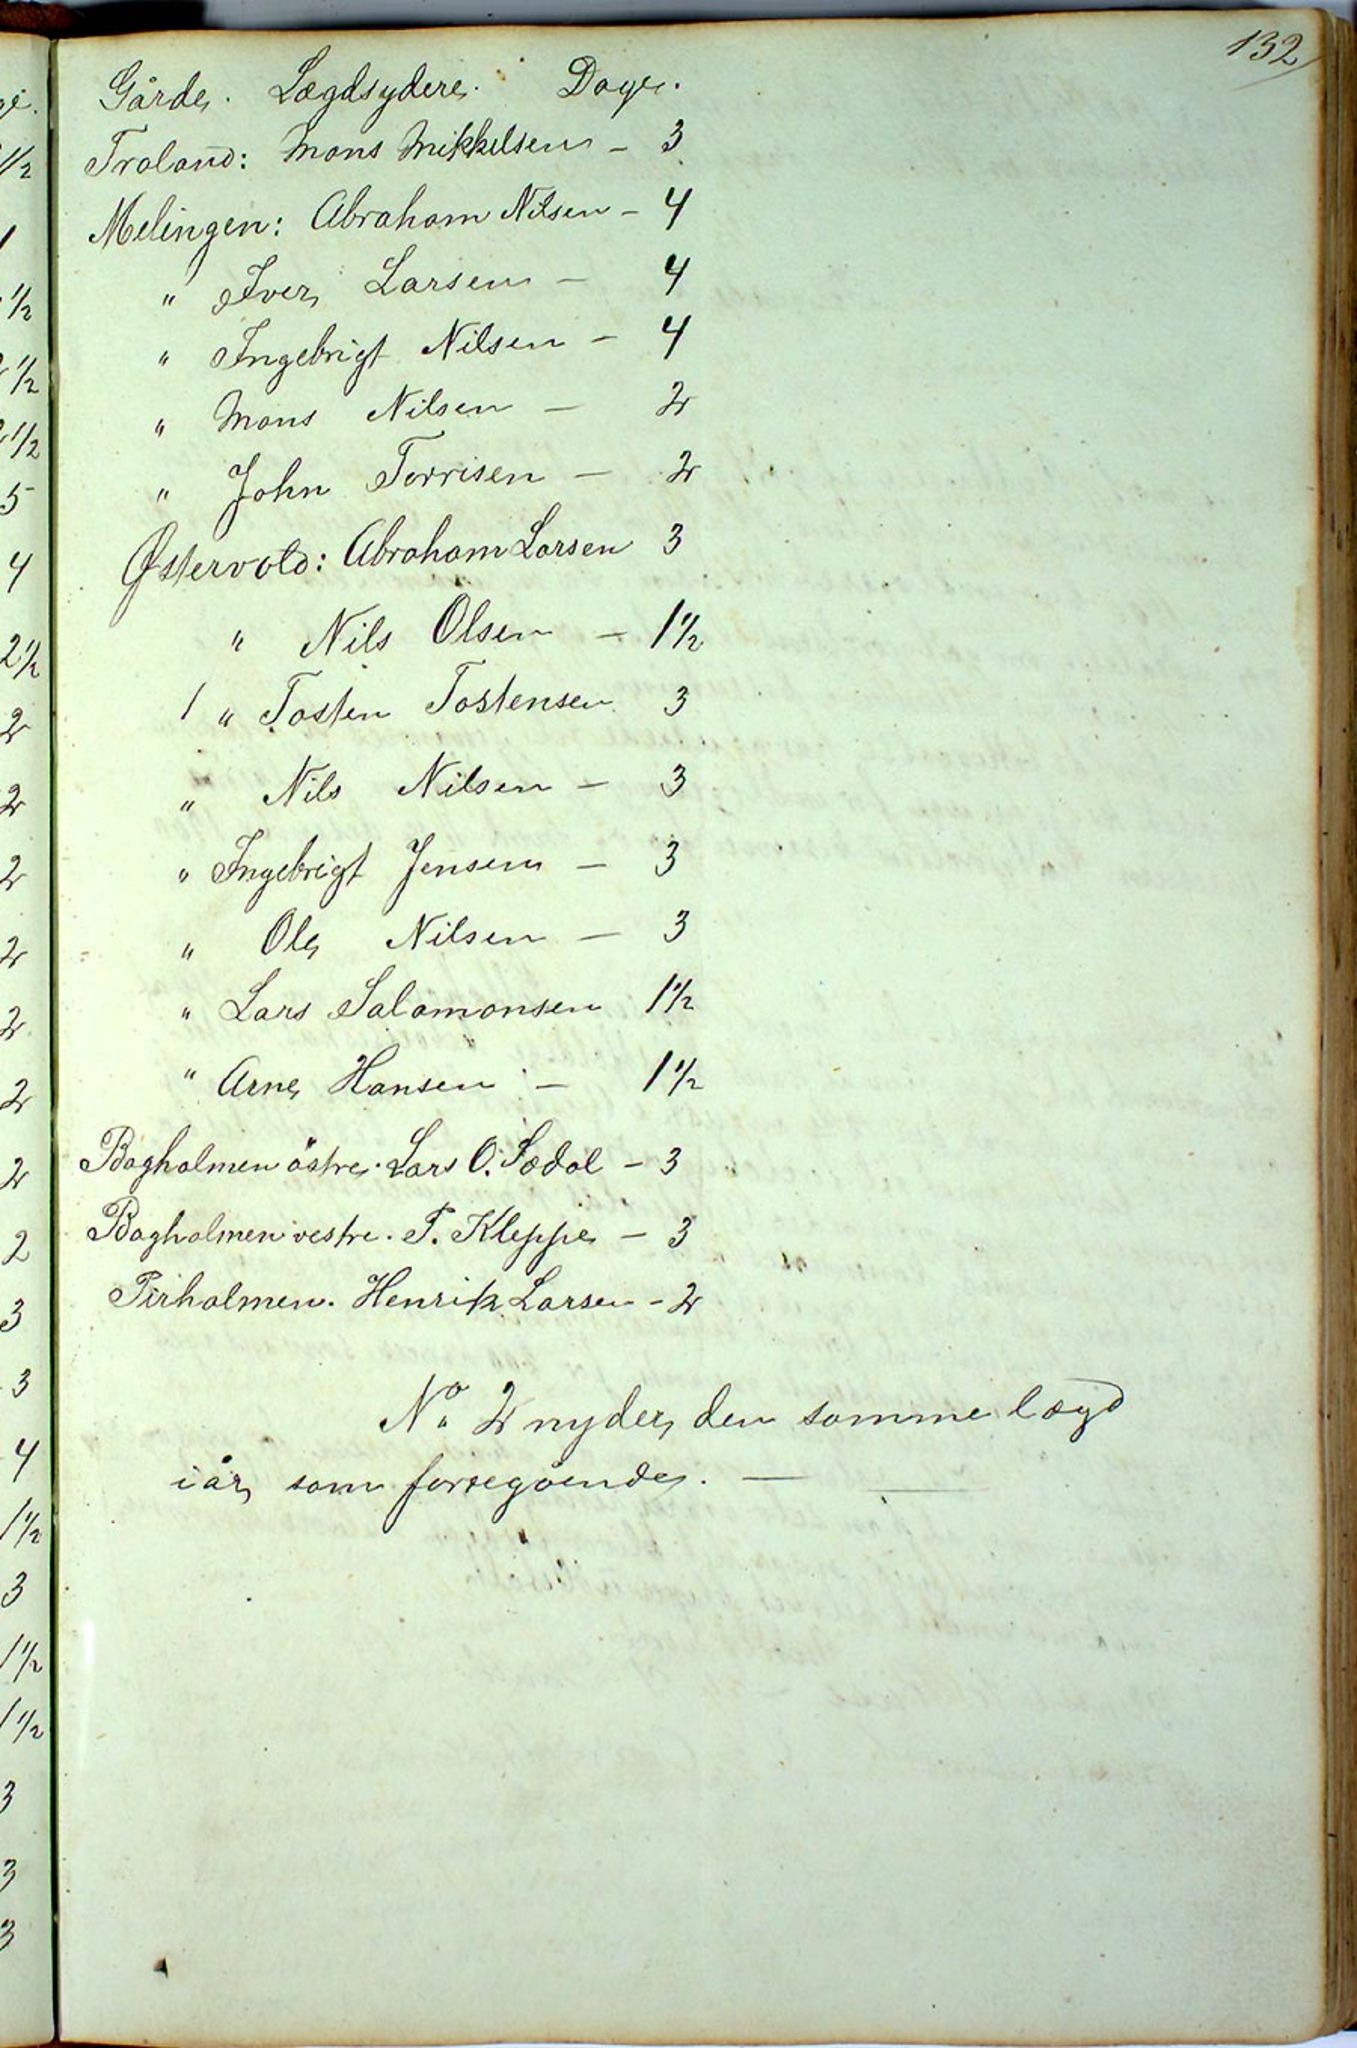 132
Gårde. Lægdsydere. Dage.
Traland: Mons Mikkelsen - 3
Melingen: Abraham Nilsen - 4
" Iver Larsen - 4
" Ingebrigt Nilsen - 4
" Mons Nilsen - 2
" John Torrisen - 2
Østervold: Abraham Larsen 3
" Nils Olsen - 1 1/2
/ " Tosten Tostensen 3
" Nils Nilsen - 3
" Ingebrigt Jensen - 3
" Ole Nilsen - 3
" Lars Salamonsen 1 1/2
" Arne Hansen - 1 1/2
Bagholmen östre. Lars O. Sædal - 3
Bagholmen vestre. T. Kleppe - 3
Pirholmen. Henrik Larsen - 2
No 2 nyder den samme lægd
iår som foregående. -